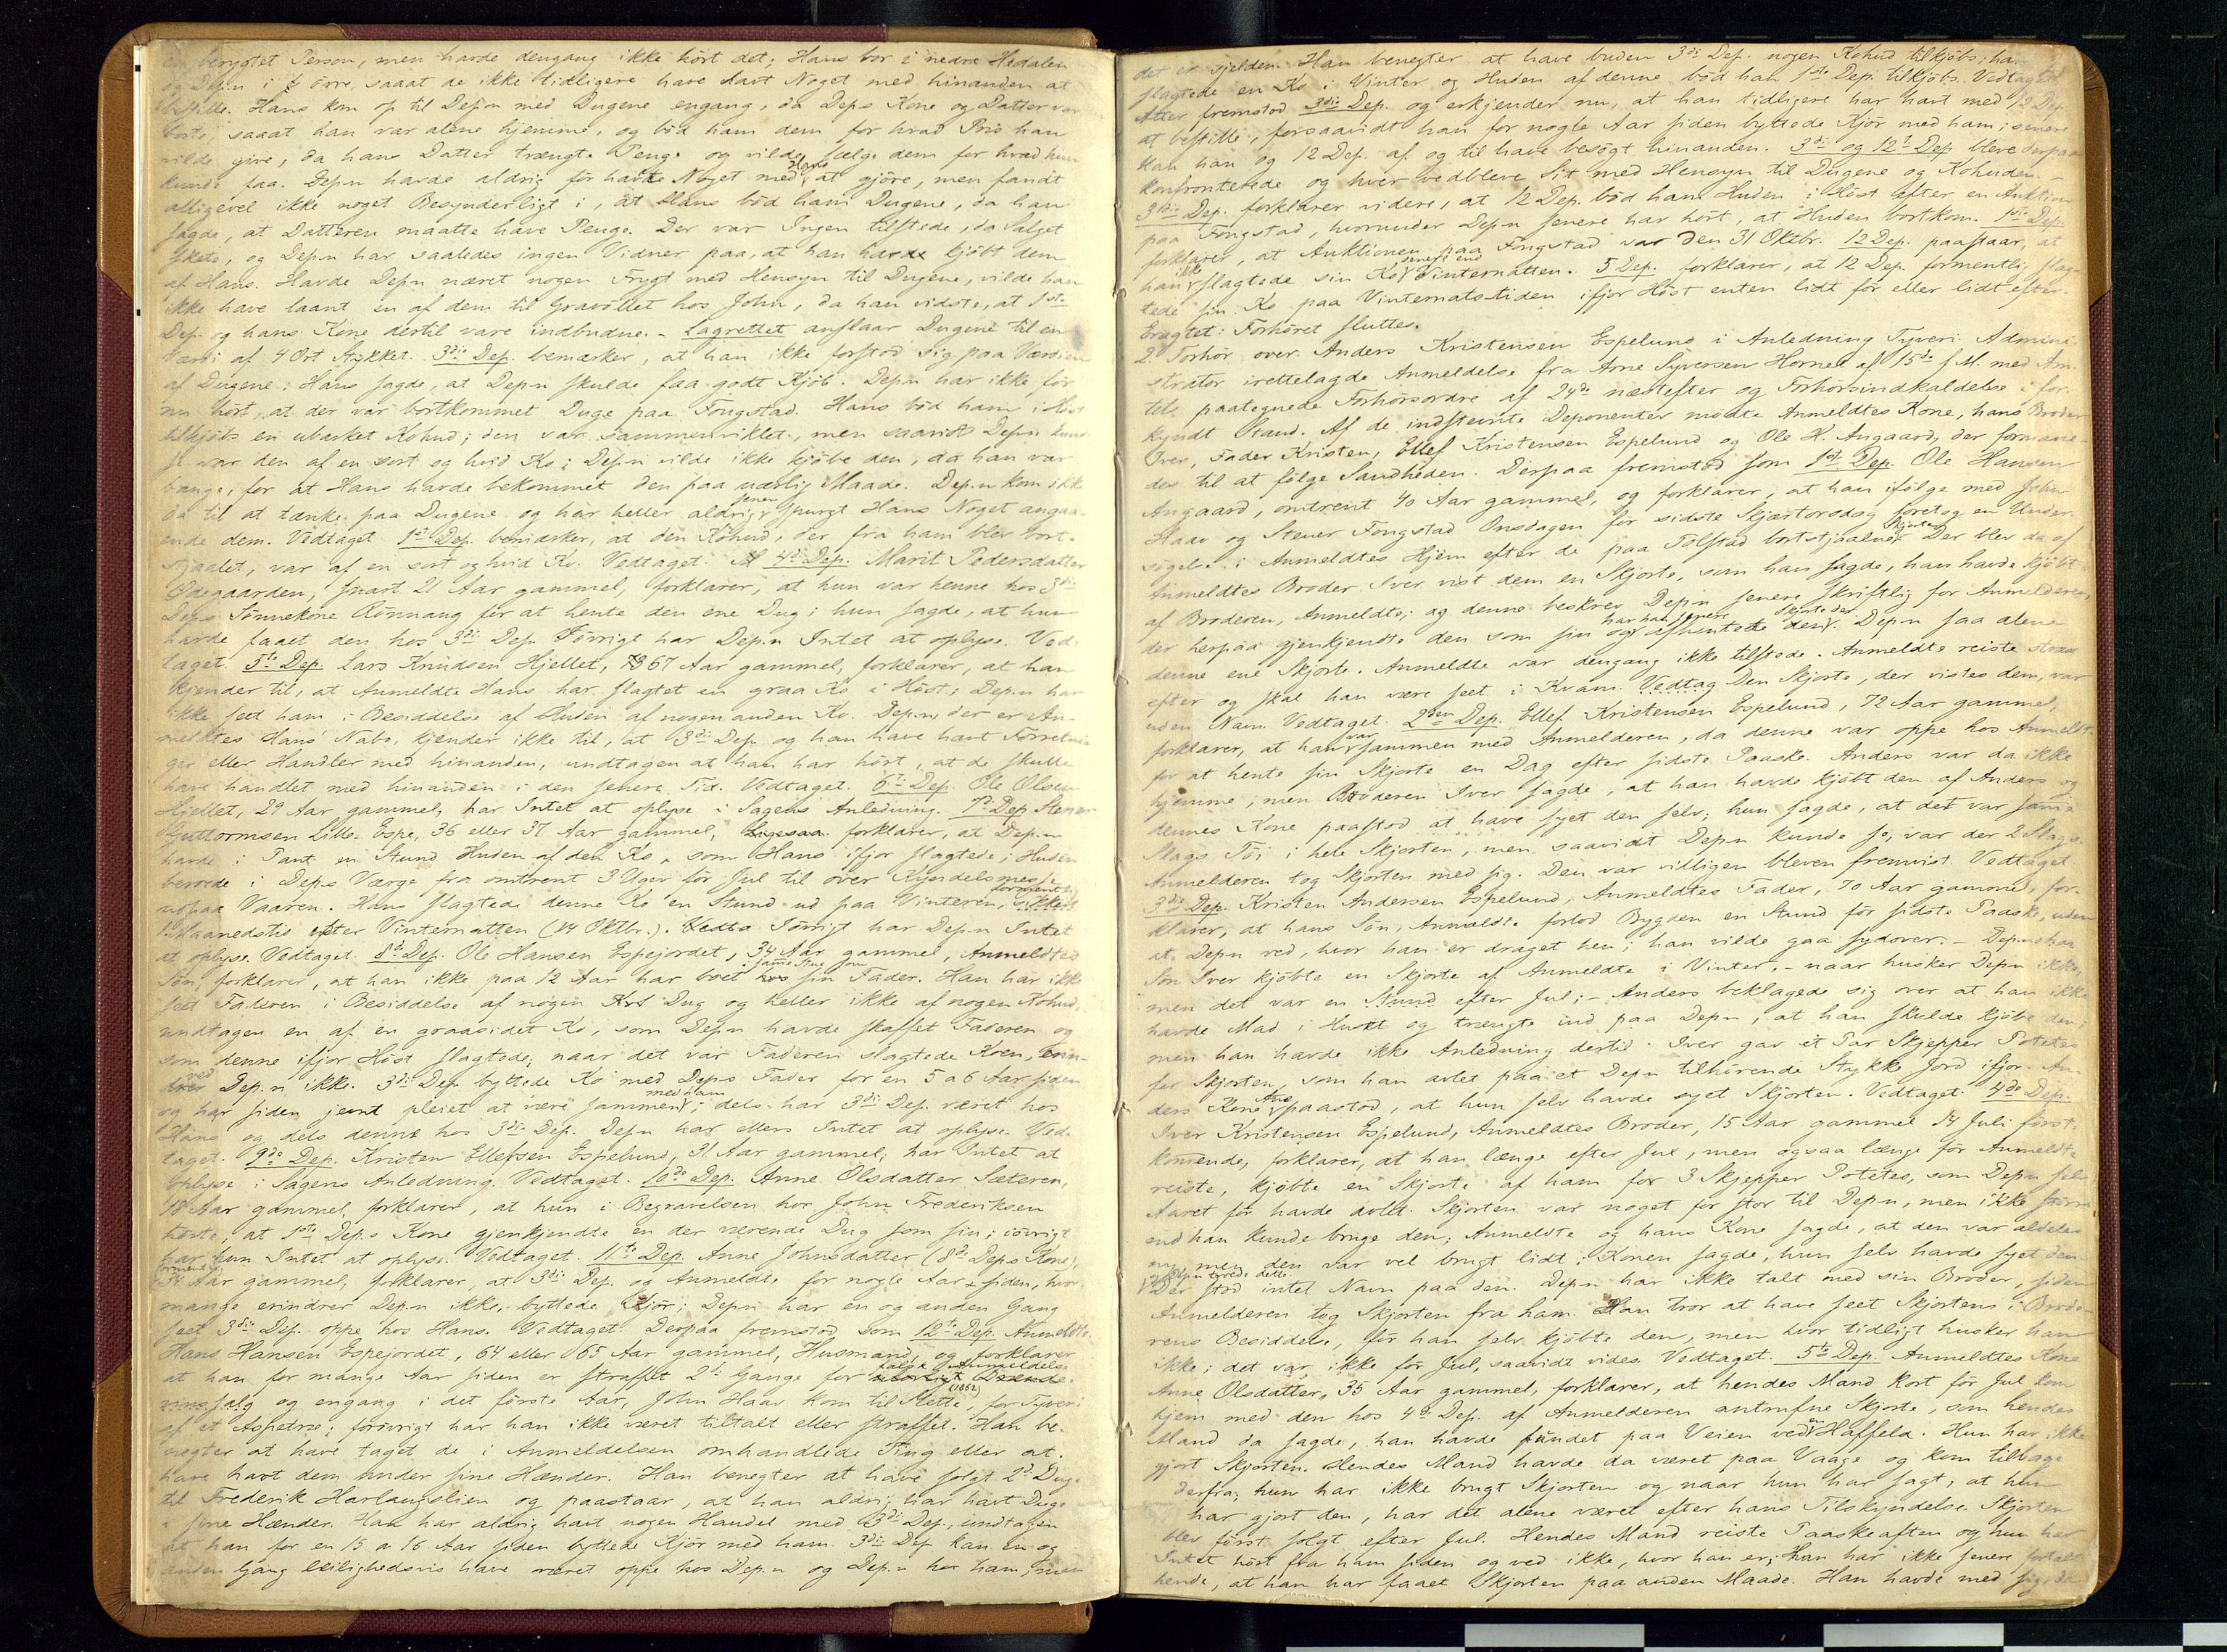 berygtet Person, men havde dengang ikke hört det; Hans bor i nedre Hedalen
og Dep.n i övre, saaat de ikke tidligere have havt Noget med hinanden at
bestille. Hans kom op til Dep.n med Dugene engang, da Deps Kone og Datter var
borte, saaat han var alene hjemme, og böd ham dem for hvad Pris han
vilde give, da hans Datter trængte Penge og vilde sælge dem for hvad hun
kunde faa. Dep.n havde aldrig för havt Noget med Hans at gjöre, men fandt
alligevel ikke noget Besynderligt i, at Hans böd ham Dugene, da han
sagde, at Datteren maatte have Penge. Der var Ingen tilstede, da Salget
skete, og Dep.n har saaledes ingen Vidner paa, at han havde kjöbt dem
af Hans. Havde Dep.n næret nogen Frygt med Hensyn til Dugene, vilde han
ikke have laant en af dem til Gravöllet hos John, da han vidste, at 1ste
Dep. og hans Kone dertil vare indbudne. - Lagrettet anslaar Dugene til en
Værdi af 4 Ort Stykket. 3die Dep. bemærker, at han ikke forstod sig paa Værdien
af Dugene; Hans sagde, at Dep.n skulde faa godt Kjöb. Dep.n har ikke för
nu hört, at der var bortkommet Duge paa Fongstad. Hans böd ham i Höst
tilkjöbs en ubarket Kohud; den var sammenviklet, men saavidt Dep.n kunde
se var den af en sort og hvid Ko; Dep.n vilde ikke kjöbe den, da han var
bange, for at Hans havde bekommet den paa uærlig Maade. Dep.n kom ikke
da til at tænke paa Dugene og har heller aldrig senere spurgt Hans Noget angaa-
ende dem. Vedtaget. 1ste Dep. bemærker, at den Kohud, der fra ham blev bort-
stjaalet, var af en sort og hvid Ko. Vedtaget. 4de Dep. Marit Pedersdatter
Ödegaarden, snart 21 Aar gammel, forklarer, at hun var henne hos 3die
Deps Sönnekone Rönnaug for at hente den ene Dug; hun sagde, at hun
havde faaet den hos 3die Dep. Forrigt har Dep.n Intet at oplyse. Ved-
taget. 5te Dep. Lars Knudsen Hjellet, 67 Aar gammel, forklarer, at han
kjender til, at Anmeldte Hans har slagtet en graa Ko i Höst; Dep.n har
ikke seet ham i Besiddelse af Huden af nogen anden Ko. Dep.n, der er An-
meldtes Hans' Nabo, kjender ikke til, at 3die Dep. og han have havt Forretnin-
ger eller Handler med hinanden, undtagen at han har hört, at de skulle
have handlet med hinanden i den senere Tid. Vedtaget. 6te Dep. Ole Olsen
Hjellet, 29 Aar gammel, har Intet at oplyse i Sagens Anledning. 7de Dep. Stener
Guttormsen Lille-Espe, 36 eller 37 Aar gammel, forklarer, at Dep.n
havde i Pant en Stund Huden af den Ko, som Hans ifjor slagtede; Huden
beroede i Deps Værge fra omtrent 3 Uger för Jul til over Kyndelsmesse
ud paa Vaaren. Hans slagtede denne Ko en Stund ud paa Vinteren, formentlig
Maanedstid efter Vinternatten (14 Oktbr.). Iövrigt har Dep.n Intet
at oplyse. Vedtaget. 8de Dep. Ole Hansen Espejordet, 34 Aar gammel, Anmeldtes
Sön, forklarer, at han ikke paa 12 Aar har boet i samme Stue som sin Fader. Han har ikke
seet Faderen i Besiddelse af nogen Dug og heller ikke af nogen Kohud,
undtagen en af en graasidet Ko, som Dep.n havde skaffet Faderen og
som denne ifjor Höst slagtede; naar det var Faderen slagtede Koen,
ved Dep.n ikke. 3die Dep. byttede Ko med Deps Fader for en 5 a 6 Aar siden
og har siden jevnt pleiet at være sammen med ham; dels har 3die Dep. været hos
Hans og dels denne hos 3die Dep. Dep.n har ellers Intet at oplyse. Ved-
taget. 9de Dep. Kristen Ellefsen Espelund, 31 Aar gammel, har Intet at
oplyse i Sagens Anledning. Vedtaget. 10de Dep. Anne Olsdatter Sæteren,
18 Aar gammel, forklarer, at hun i Begravelsen hos John Frederiksen
hörte, at 1ste Deps Kone gjenkjendte en der værende Dug som sin; iövrigt
har hun Intet at oplyse. Vedtaget. 11te Dep. Anne Johnsdatter (8de Deps Kone),
formentlig 34 Aar gammel, forklarer, at 3die Dep. og Anmeldte for nogle Aar siden, hvor
mange erindrer Dep.n ikke, byttede Kjör; Dep.n har en og anden Gang
seet 3die Dep. oppe hos Hans. Vedtaget. Derpaa fremstod som 12te Dep. Anmeldte
Hans Hansen Espejordet, 64 eller 65 Aar gammel, Husmand, og forklarer
at han for mange Aar siden er straffet 2de Gange for
og engang i det förste Aar, John Haav kom til Rette (1862), for Tyveri
af et Aspetræ; forövrigt har han ikke været tiltalt eller straffet. Han be-
nægter at have taget de i Anmeldelsen omhandlede Ting eller at
have havt dem under sine Hænder. Han benegter at have solgt 2de Duge
til Frederik Harlaugslien og paastaar, at han aldrig har havt Duge
i sine Hænder. Han har aldrig havt nogen Handel med 3die Dep., undtagen
at han for en 15 a 16 Aar siden byttede Kjör med ham. 3die Dep. kan en og
anden Gang leilighedsvis have været oppe hos Dep.n og Dep.n hos ham, men
det er sjelden. Han benegter at have buden 3die Dep. nogen Kohud tilkjöbs; han
slagtede en Ko i Vinter og Huden af denne böd han 1ste Dep. tilkjöbs. Vedtaget.
Atter fremstod 3die Dep. og erkjender nu, at han tidligere har havt med 12 Dep.
at bestille, forsaavidt han for nogle Aar siden byttede Kjör med ham; senere
kan han og 12 Dep. af og til have besögt hinanden. 3die og 12te Dep. bleve derpaa
konfronterede og hver vedbleve Sit med Hensyn til Dugene og Kohuden. -
3die Dep. forklarer videre, at 12 Dep. böd ham Huden i Höst efter en Auktion
paa Fongstad, hvorunder Dep.n senere har hört, at Huden bortkom. 1ste Dep.
forklarer, at Auktionen paa Fongstad var den 31 Oktbr. 12 Dep. paastaar, at
han ikke slagtede sin Ko senere end Vinternatten. 5 Dep. forklarer, at 12 Dep. formentlig slag-
tede sin Ko paa Vinternatstiden ifjor Höst enten lidt för eller lidt efter.
Eragtet: Forhöret sluttes.
2. Forhör over Anders Kristensen Espelund i Anledning Tyveri. Admini-
strator irettelagde Anmeldelse fra Arne Syversen Hornel af 15de f. M. med Am-
tets paategnede Forhörsordre af 24de næstefter og Forhörsindkaldelse i for-
kyndt Stand. Af de indstevnte Deponenter mödte Anmeldtes Kone, hans Broder
Iver, Fader Kristen, Ellef Kristensen Espelund og Ole H. Angaard, der formane-
des til at fölge Sandheden. Derpaa fremstod som 1ste Dep. Ole Hansen
Angaard, omtrent 40 Aar gammel, og forklarer, at han ifölge med John
Haav og Stener Fongstad Onsdagen för sidste Skjærtorsdag foretog en Under-
sögelse i Anmeldtes Hjem efter de paa Tolstad bortstjaalne Skjorter. Der blev da af
Anmeldtes Broder Iver vist dem en Skjorte, som han sagde, han havde kjöbt
af Broderen, Anmeldte; og denne beskrev Dep.n senere skriftlig for Anmelderen,
der herpaa gjenkjendte den som sin og har han senere afhentet den Skjorte der. Dep.n saa alene
denne ene Skjorte. Anmeldte var dengang ikke tilstede. Anmeldte reiste strax
efter og skal han være seet i Kvam. Vedtag Den Skjorte, der vistes dem, var
uden Navn. Vedtaget. 2den Dep. Ellef Kristensen Espelund, 72 Aar gammel,
forklarer, at han var sammen med Anmelderen, da denne var oppe hos Anmeldte
for at hente sin Skjorte en Dag efter sidste Paaske. Anders var da ikke
hjemme, men Broderen Iver sagde, at han havde kjöbt den af Anders og
dennes Kone paastod at have syet den selv; hun sagde, at det var samme
Slags Töi i hele Skjorten, men saavidt Dep.n kunde se, var der 2 Slags.
Anmelderen tog Skjorten med sig. Den var villigen bleven fremvist. Vedtaget.
3die Dep. Kristen Andersen Espelund, Anmeldtes Fader, 70 Aar gammel, for-
klarer, at hans Sön, Anmeldte forlod Bygden en Stund för sidste Paaske, uden
at Dep.n ved, hvor han er draget hen; han vilde gaa sydover. - Dep.ns
Sön Iver kjöbte en Skjorte af Anmeldte i Vinter, - naar husker Dep.n ikke,
men det var en Stund efter Jul; - Anders beklagede sig over at han ikke
havde Mad i Huset og trængte ind paa Dep.n, at han skulde kjöbe den;
men han havde ikke Anledning dertil. Iver gav et Par Skjepper Potetes
for Skjorten, som han avlet paa et Dep.n tilhörende Stykke Jord ifjor. An-
ders Kone Ane paastod, at hun selv havde syet Skjorten. Vedtaget. 4de Dep.
Iver Kristensen Espelund, Anmeldtes Broder, 15 Aar gammel 14 Juli först-
kommende, forklarer, at han længe efter Jul, men ogsaa længe för Anmeldte
reiste, kjöbte en Skjorte af ham for 3 Skjepper Potetes, som Dep.n selv
Aaret för havde avlet. Skjorten var noget for stor til Dep.n, men ikke större
end han kunde bruge den; Anmeldte og hans Kone sagde, at den var aldeles
ny, men den var vel brugt lidt; Konen sagde, hun selv havde syet den
og Dep.n troede dette. Der stod intet Navn paa den. Dep.n har ikke talt med sin Broder, siden
Anmelderen tog Skjorten fra ham. Han tror at have seet Skjorten i Brode-
rens Besiddelse, för han selv kjöbte den, men hvor tidligt husker han
ikke; det var ikke för Jul, saavidt vides. Vedtaget. 5te Dep. Anmeldtes Kone
Anne Olsdatter, 35 Aar gammel, forklarer, at hendes Mand kort för Jul kom
hjem med den hos 4de Dep. af Anmelderen antrufne Skjorte, som hendes
Mand da sagde, han havde fundet paa Veien ved en Haffela. Hun har ikke
gjort Skjorten. Hendes Mand havde da været paa Vaage og kom tilbage
derfra; hun har ikke brugt Skjorten og naar hun har sagt, at hun
har gjort den, har det alene været efter hans Tilskyndelse. Skjorten
blev först solgt efter Jul. Hendes Mand reiste Paaskeaften og hun har
Intet hört fra ham siden og ved ikke, hvor han er; Han har ikke senere fortalt
hende, at han har faaet Skjorten paa anden Maade. Han havde med sig